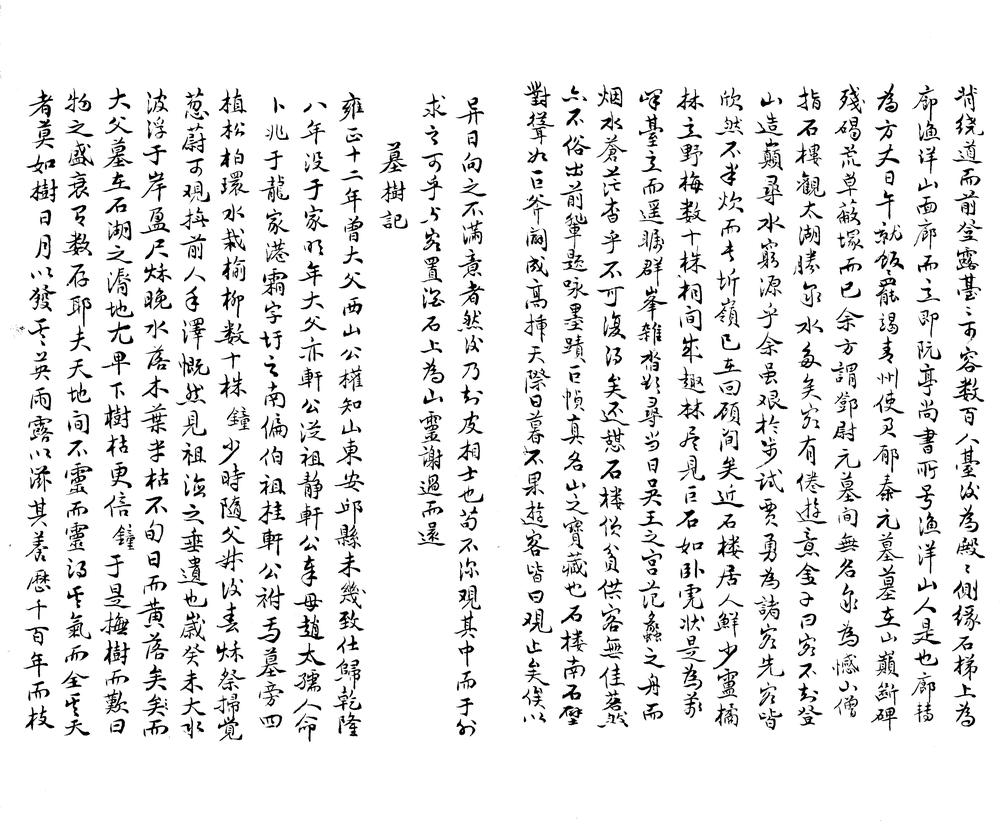 背繞道而前登露臺〻可容数百人臺後為殿〻側緣石梯上為
廊漁洋山面廊而立即阮亭尚書所号漁洋山人是也廊轉
為方丈日午就飯罷謁青州使君郁泰元墓墓在山巔斷碑
殘碣荒草蔽塚而已余方謂鄧尉元墓間無名泉為憾山僧
指石樓觀太湖勝泉水每矣客有倦遊意金子曰客不封登
山造巔尋水窮源乎余虽艰於步試賈勇為諸客先客皆
欣然不半炊而吉圻嶺已在回顾间矣近石楼居人鮮少靈橘
林立野梅数十株相间成趣林尽見巨石如卧虎状是為萬
峰臺立而遥瞩群峯雜沓欲尋当日吳王之宫范蠡之舟而
烟水蒼茫杳乎不可復得矣还憩石楼僧贫供客無佳茗然
亦不俗出前輩题咏墨蹟巨帧真名山之寳藏也石楼南石壁
對聳如巨斧劚成高挿天際日暮不果遊客皆曰观止矣俟以
异日向之不满意者然後乃知皮相士也苟不深观其中而于外
求之可乎与客置酒石上為山靈謝過而還
墓樹記
雍正十二年曾大父西山公權知山東安邱縣未幾致仕歸乾隆
八年没于家明年大父亦軒公從祖静軒公奉母趙太孺人命
卜兆于龍家港霜字圩之南偏伯祖桂軒公祔焉墓旁四
植松柏環水栽榆柳数十株鐘少時隨父叔後春秋祭掃覺
葱蔚可观撫前人手澤慨然見祖德之垂遺也歲癸未大水
波浮于岸盈尺秋晚水落木葉半枯不旬日而黄落矣矣而
大父墓在石湖之濱地尤卑下樹枯更倍鐘于是撫樹而歎曰
物之盛衰有数存耶夫天地间不靈而靈得其氣而全其天
者莫如樹日月以發其英雨露以滋其養歷千百年而枝